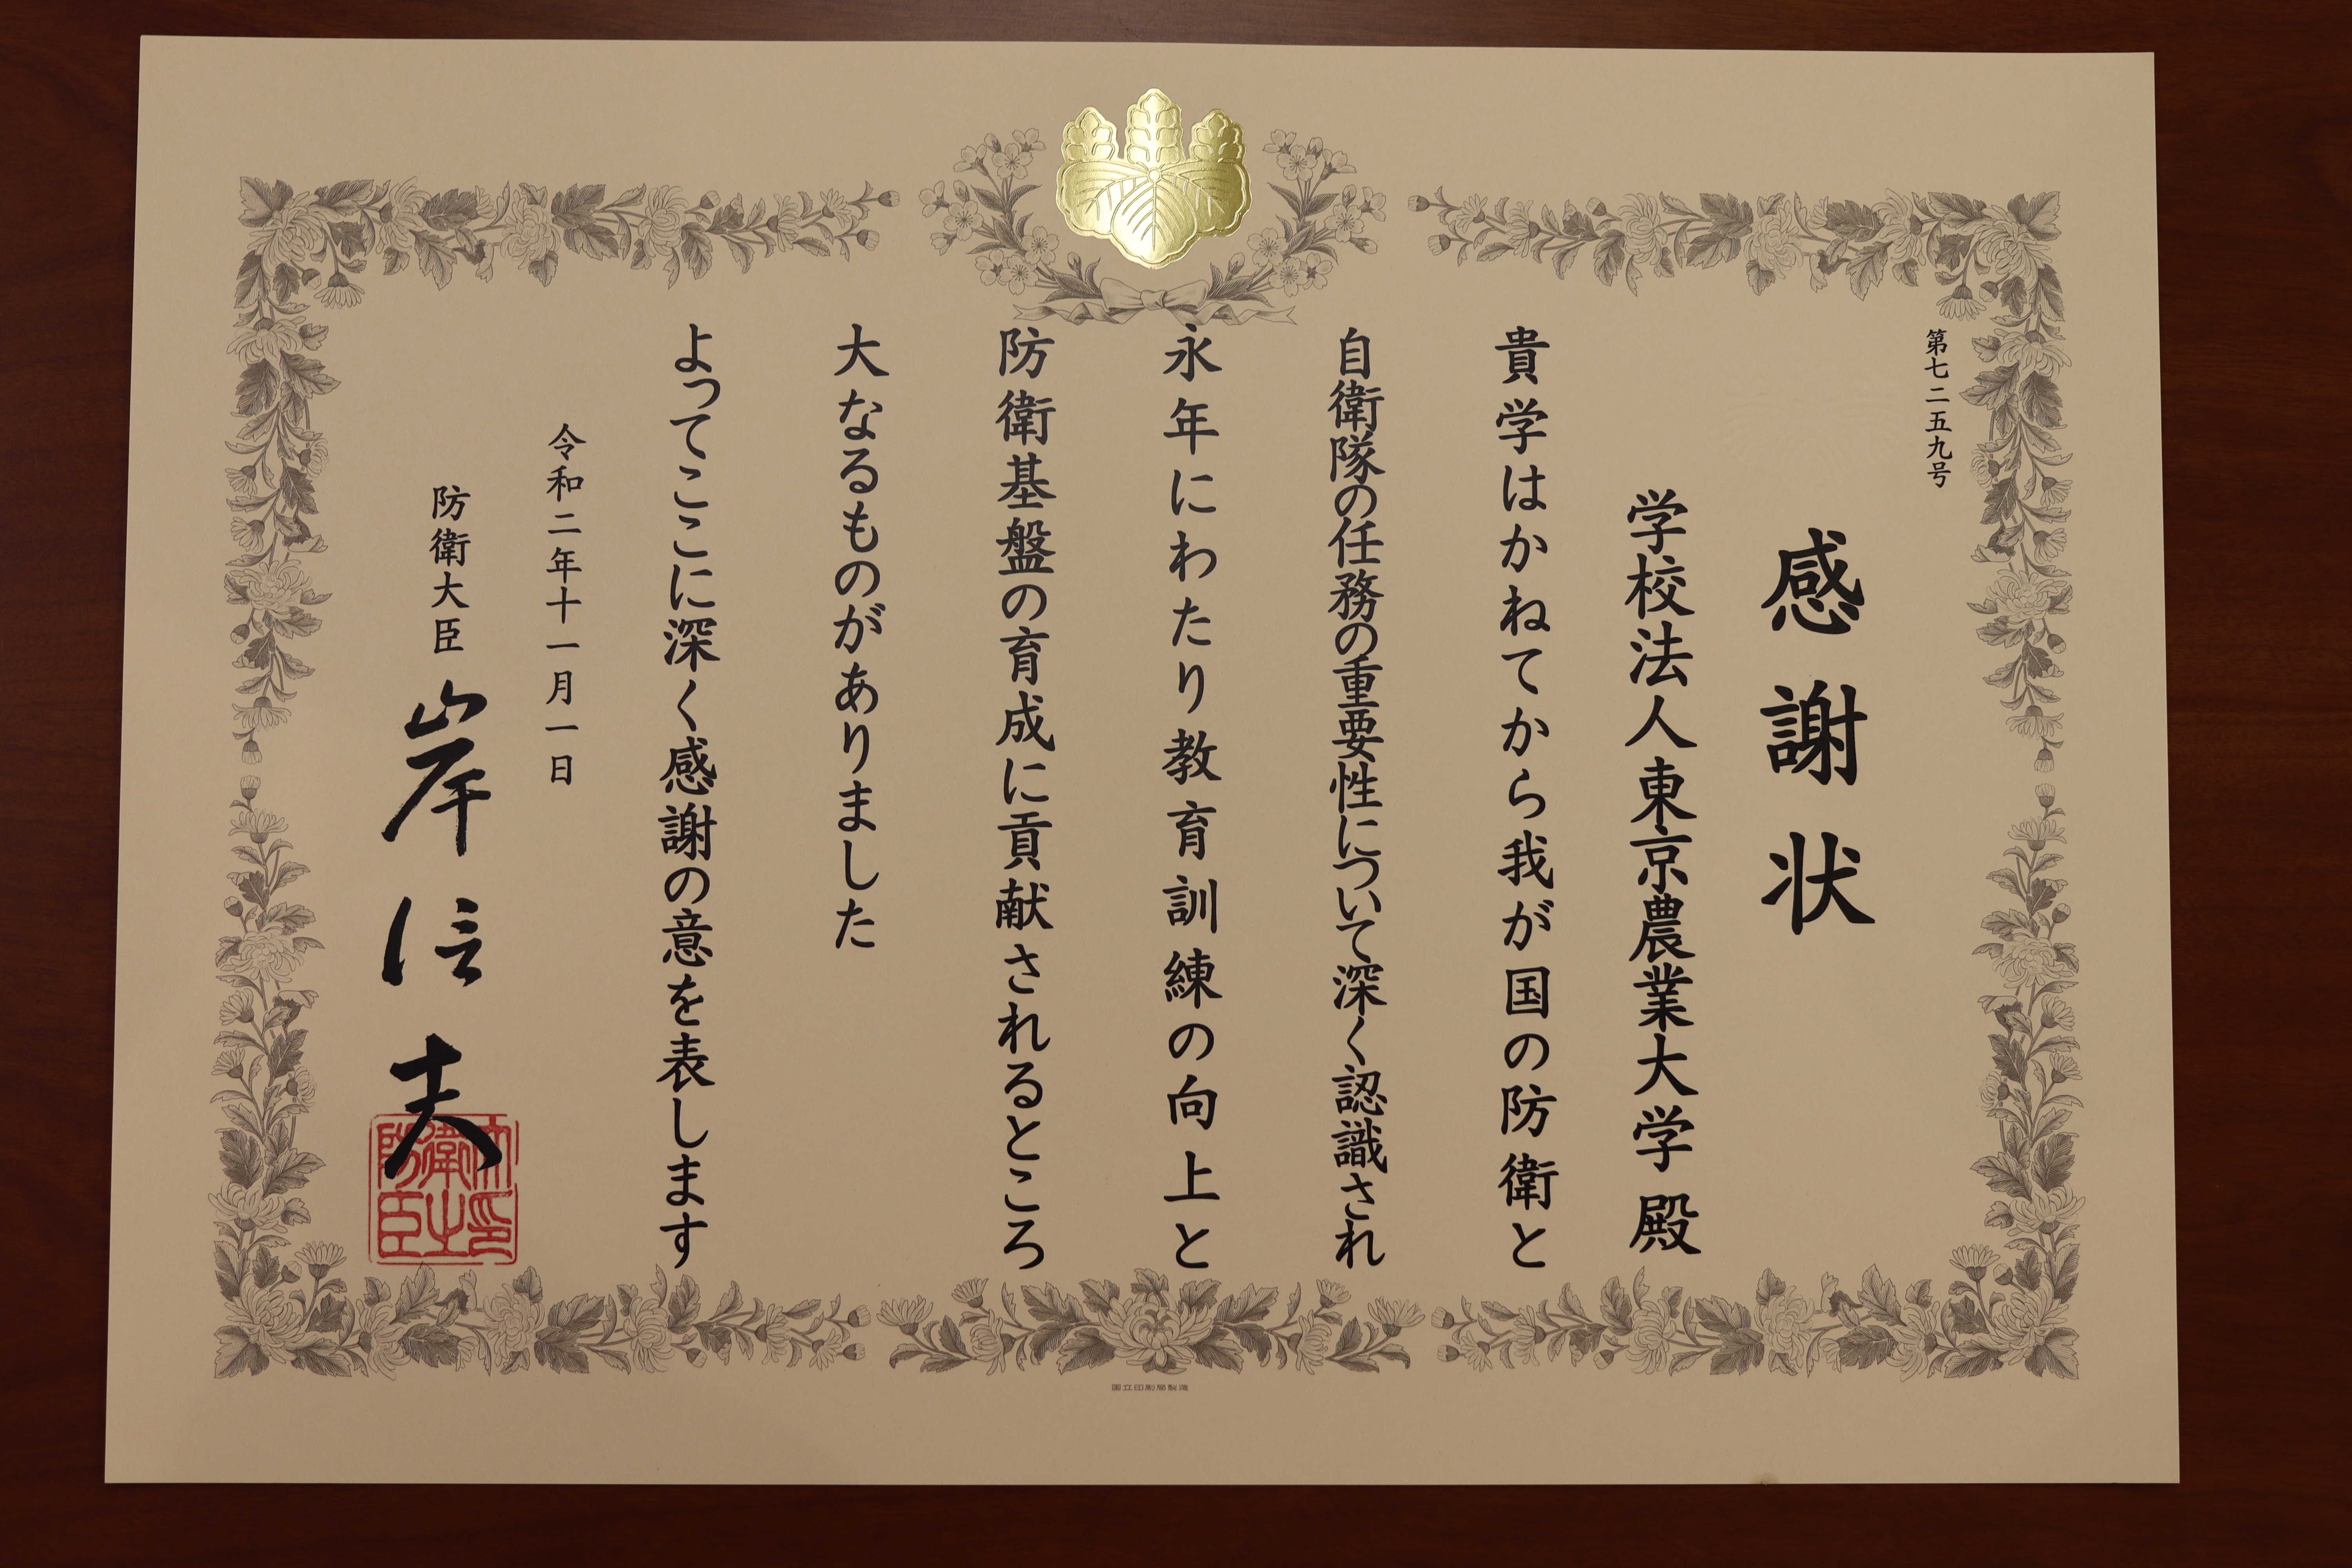 第七二五九号
感謝状
学校法人東京農業大学殿
貴学はかねてから我が国の防衛と
自衛隊の任務の重要性について深く認識され
永年にわたり教育訓練の向上と
防衛基盤の育成に貢献されるところ
大なるものがありました
よってここに深く感謝の意を表します
令和二年十一月一日
防衛大臣 岸信夫
防衛大臣之印
国立印刷局製造